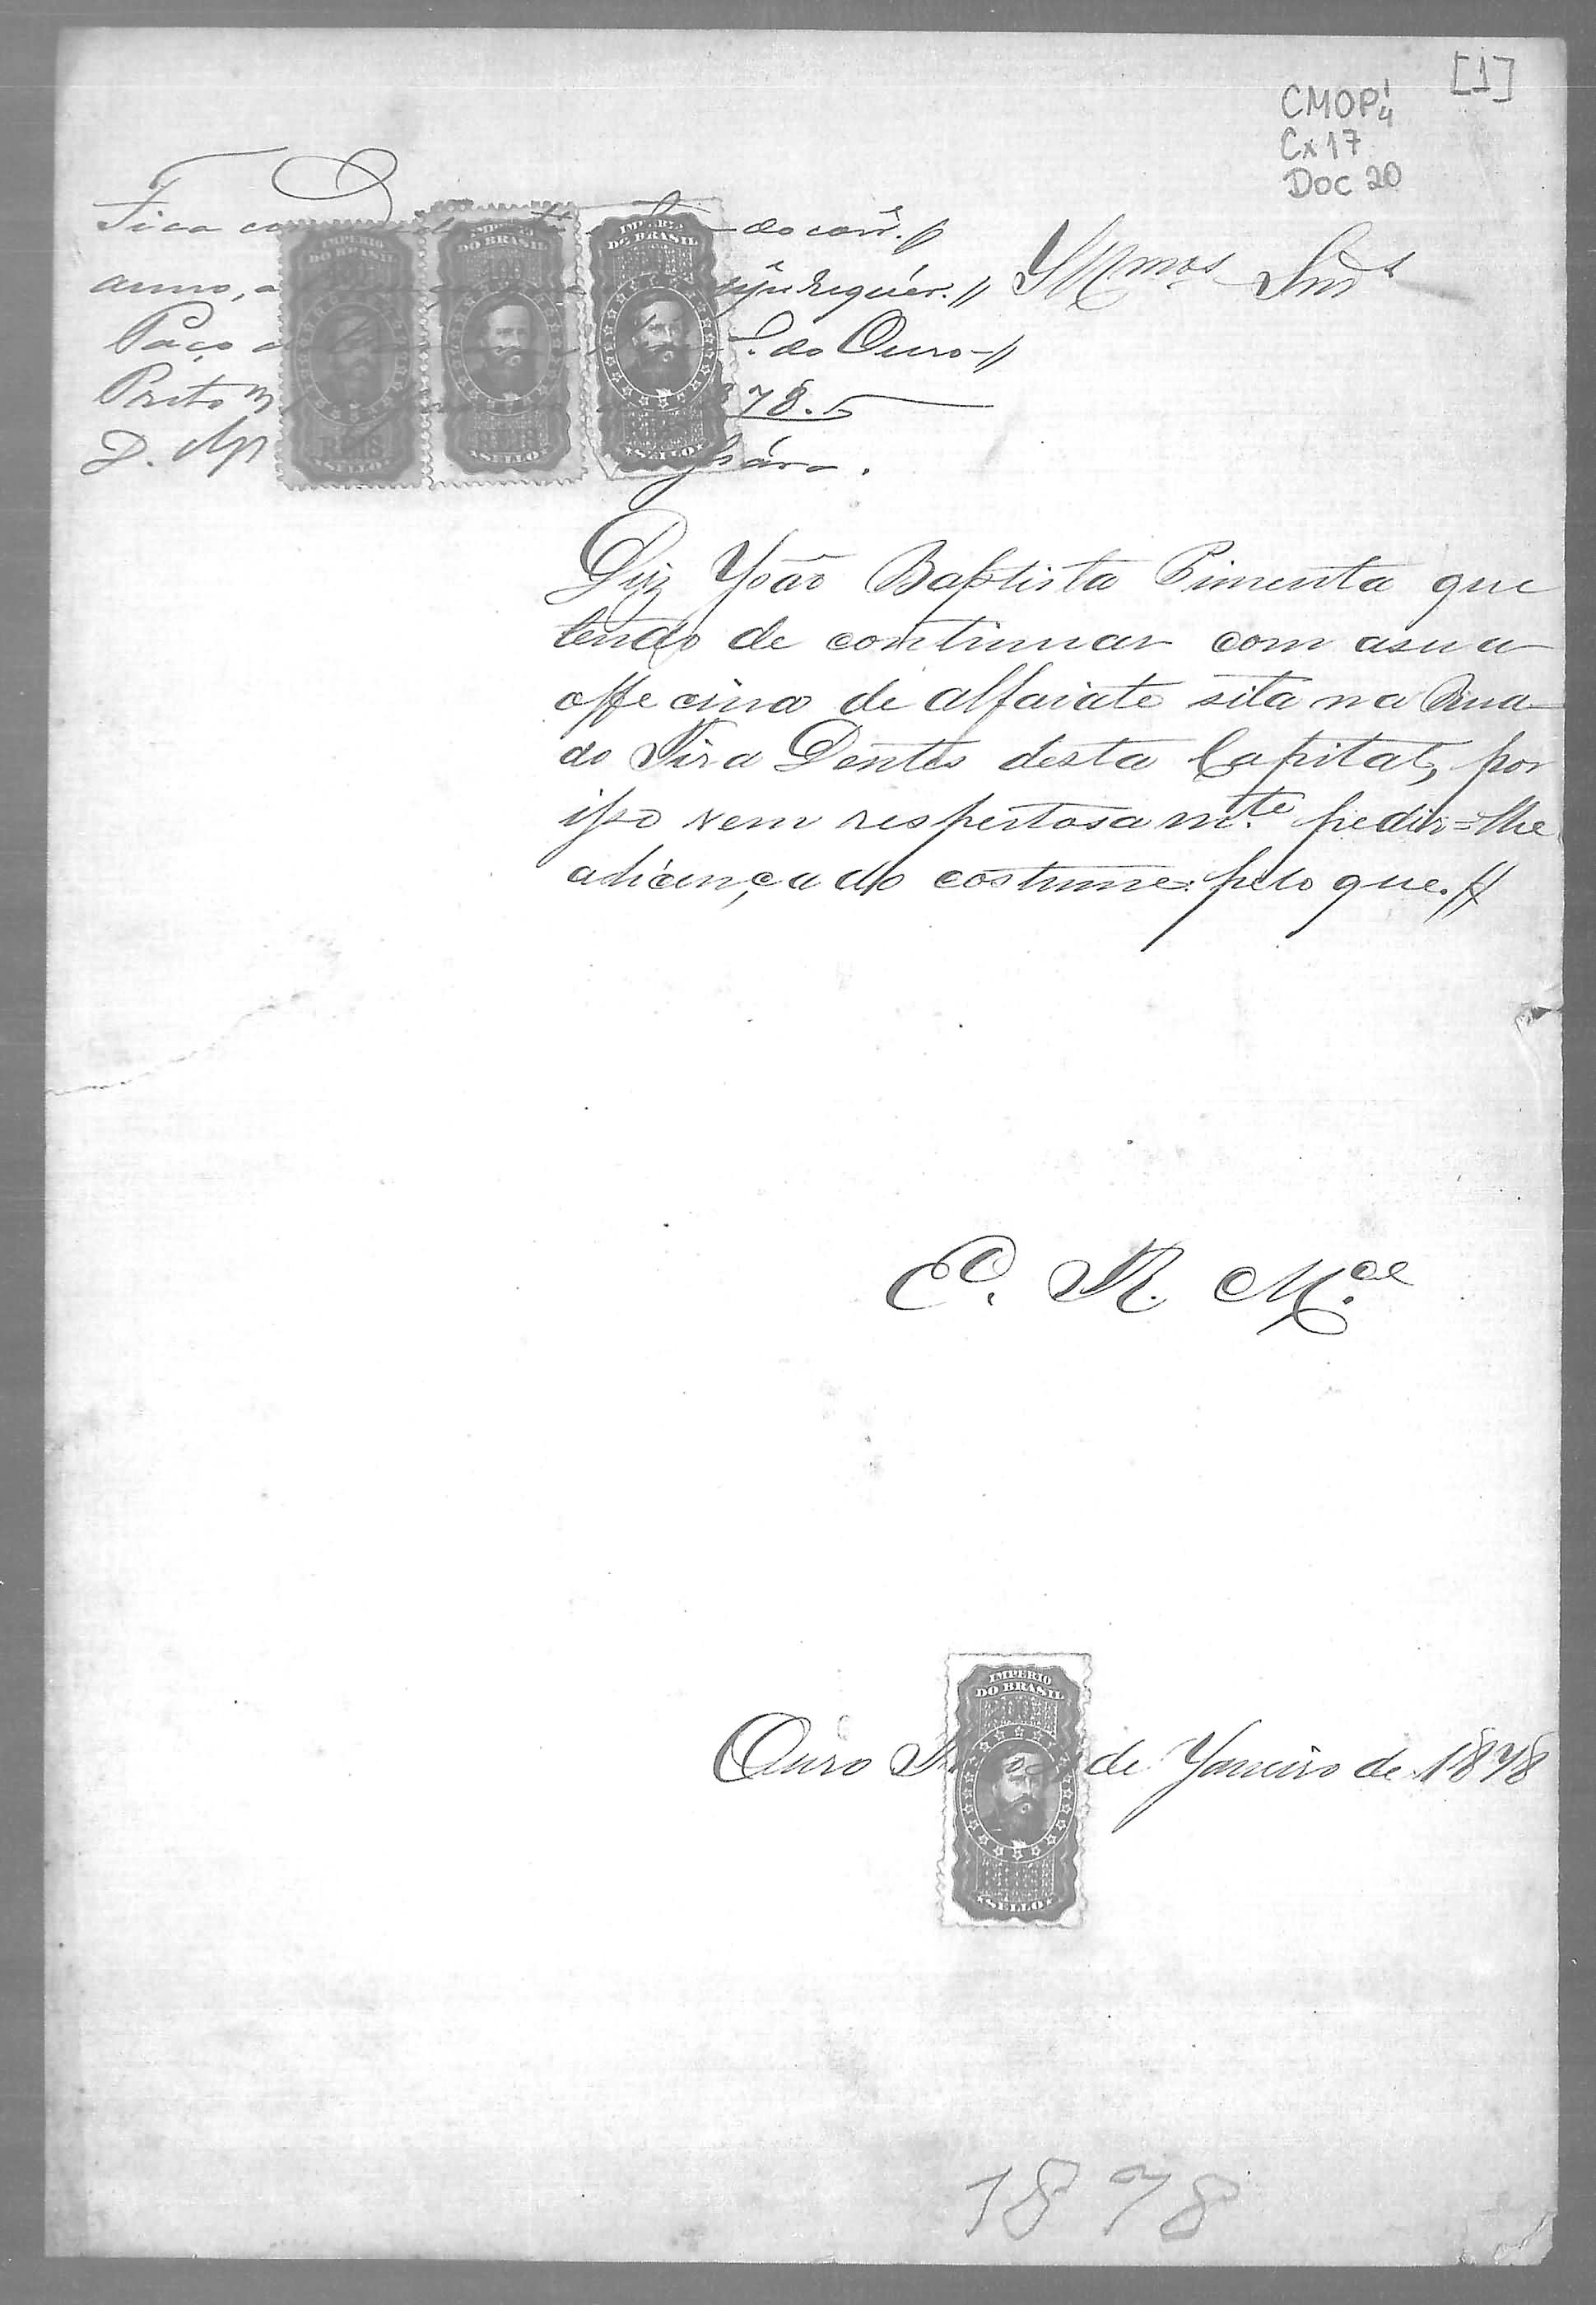 [1]
CMOP 1/4
Cx 17
Doc 20
Fica do corr.e
anno, requér.
Paço do Ouro-
Preto 1878.
D.
Illmos Snrs
Diz João Baptista Pimenta que
tendo de continuar com asua
offecina de alfaiate sita na Rua
do Tira Dentes desta Capital, por
isso vem respeitosamte pedir=lhe
alicença do costume: pelo que.
E. R. Mce
Ouro de Janeiro de 1878
IMPERIO
DO BRASIL
REIS
SELLO
IMPERIO
DO BRASIL
100
REIS
SELLO
IMPERIO
DO BRASIL
SELLO
IMPERIO
DO BRASIL
200
SELLO
1878